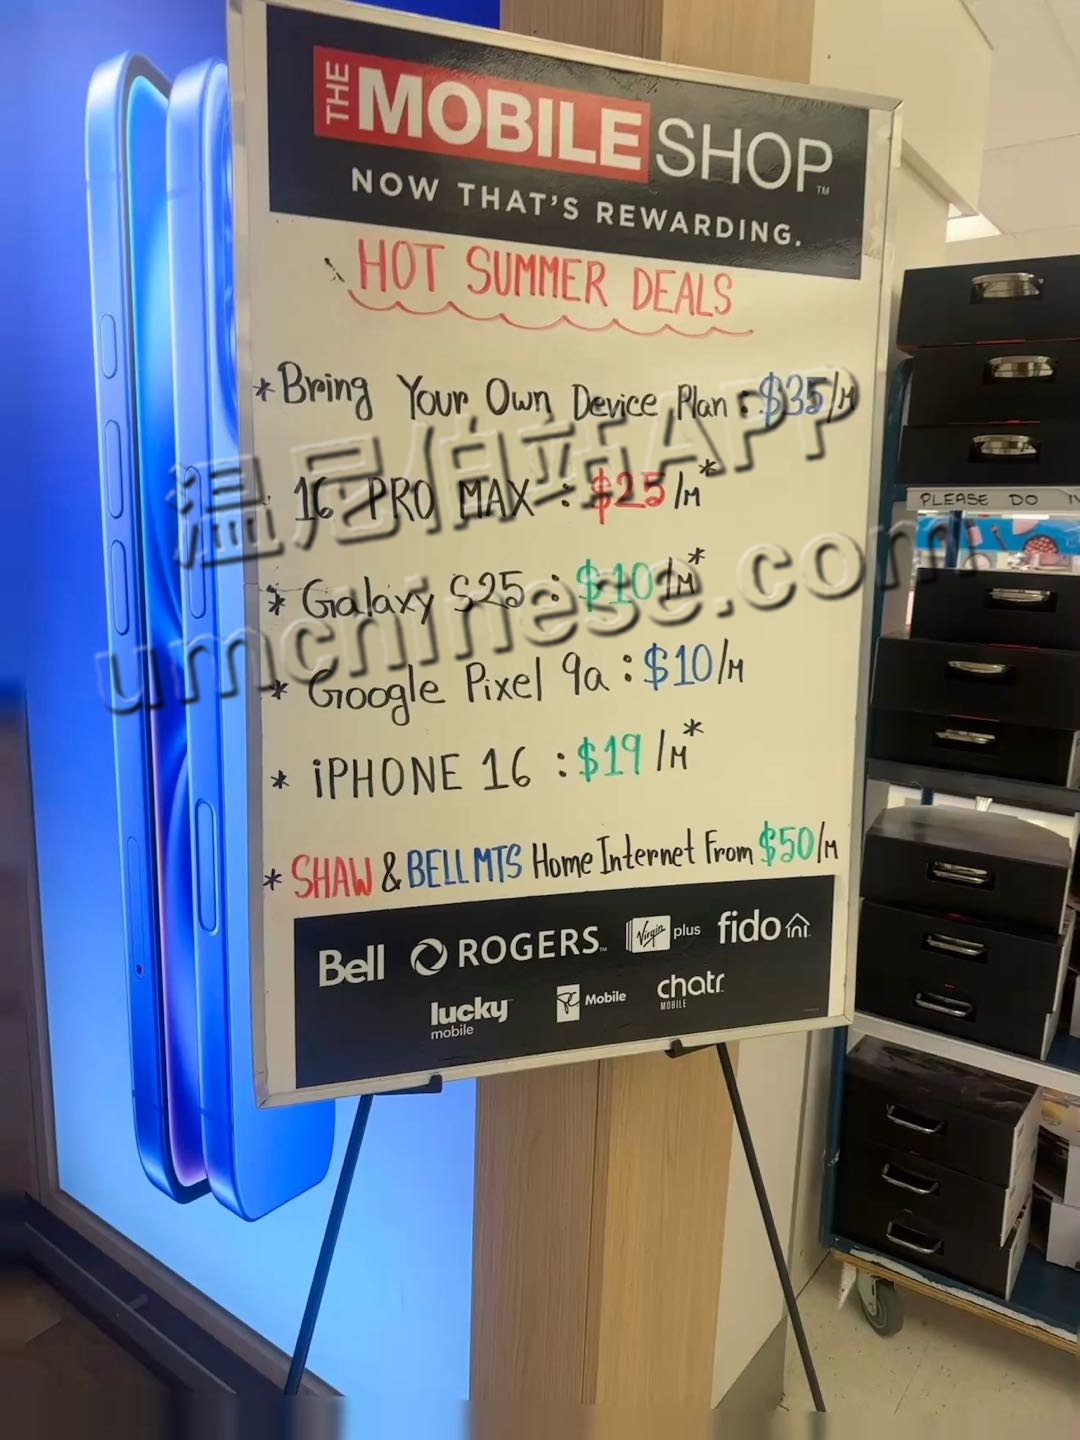 THE MOBILE SHOP™
NOW THAT'S REWARDING.
HOT SUMMER DEALS
* Bring Your Own Device Plan : $35/M
16 PRO MAX : $25/M*
* Galaxy S25 : $10/M*
* Google Pixel 9a : $10/M
* iPHONE 16 : $19/M*
* SHAW & BELL MTS Home Internet From $50/M
Bell ROGERS™ Virgin plus fido
lucky mobile PC Mobile chatr MOBILE
PLEASE DO
温尼伯站APP
umchinese.com